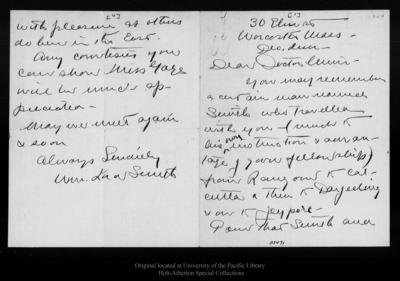 [4]
with pleasure as others
do here in the East.
Any courtesies you
can show Miss Gage
will be much ap-
preciated -
May we meet again
& soon
Always Sincerely
Wm. Smith
[1]
30 Elm St
Worcester Mass -
Dear Doctor Muir -
You may remember
a certain man named
Smith who travelled
with you (much to
his own instruction & advan-
tage & your fellowship)
from Rangoon to Cal-
cutta & then to Darjeeling
& on to Jeypore -
Now that Smith and
03471
Original located at University of the Pacific Library
Holt-Atherton Special Collections